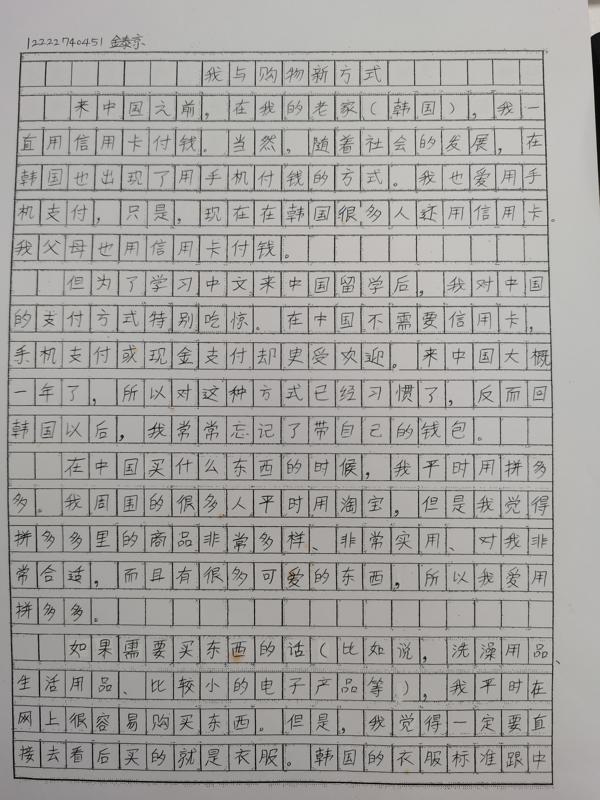 12222740451 金泰京
我与购物新方式
来中国之前，在我的老家（韩国），我一
直用信用卡付钱。当然，随着社会的发展，在
韩国也出现了用手机付钱的方式。我也爱用手
机支付，只是，现在在韩国很多人还用信用卡。
我父母也用信用卡付钱。
但为了学习中文来中国留学后，我对中国
的支付方式特别吃惊。在中国不需要信用卡，
手机支付或现金支付却更受欢迎。来中国大概
一年了，所以对这种方式已经习惯了，反而回
韩国以后，我常常忘记了带自己的钱包。
在中国买什么东西的时候，我平时用拼多
多。我周围的很多人平时用淘宝，但是我觉得
拼多多里的商品非常多样、非常实用、对我非
常合适，而且有很多可爱的东西，所以我爱用
拼多多。
如果需要买东西的话（比如说，洗澡用品、
生活用品、比较小的电子产品等），我平时在
网上很容易购买东西。但是，我觉得一定要直
接去看后买的就是衣服。韩国的衣服标准跟中